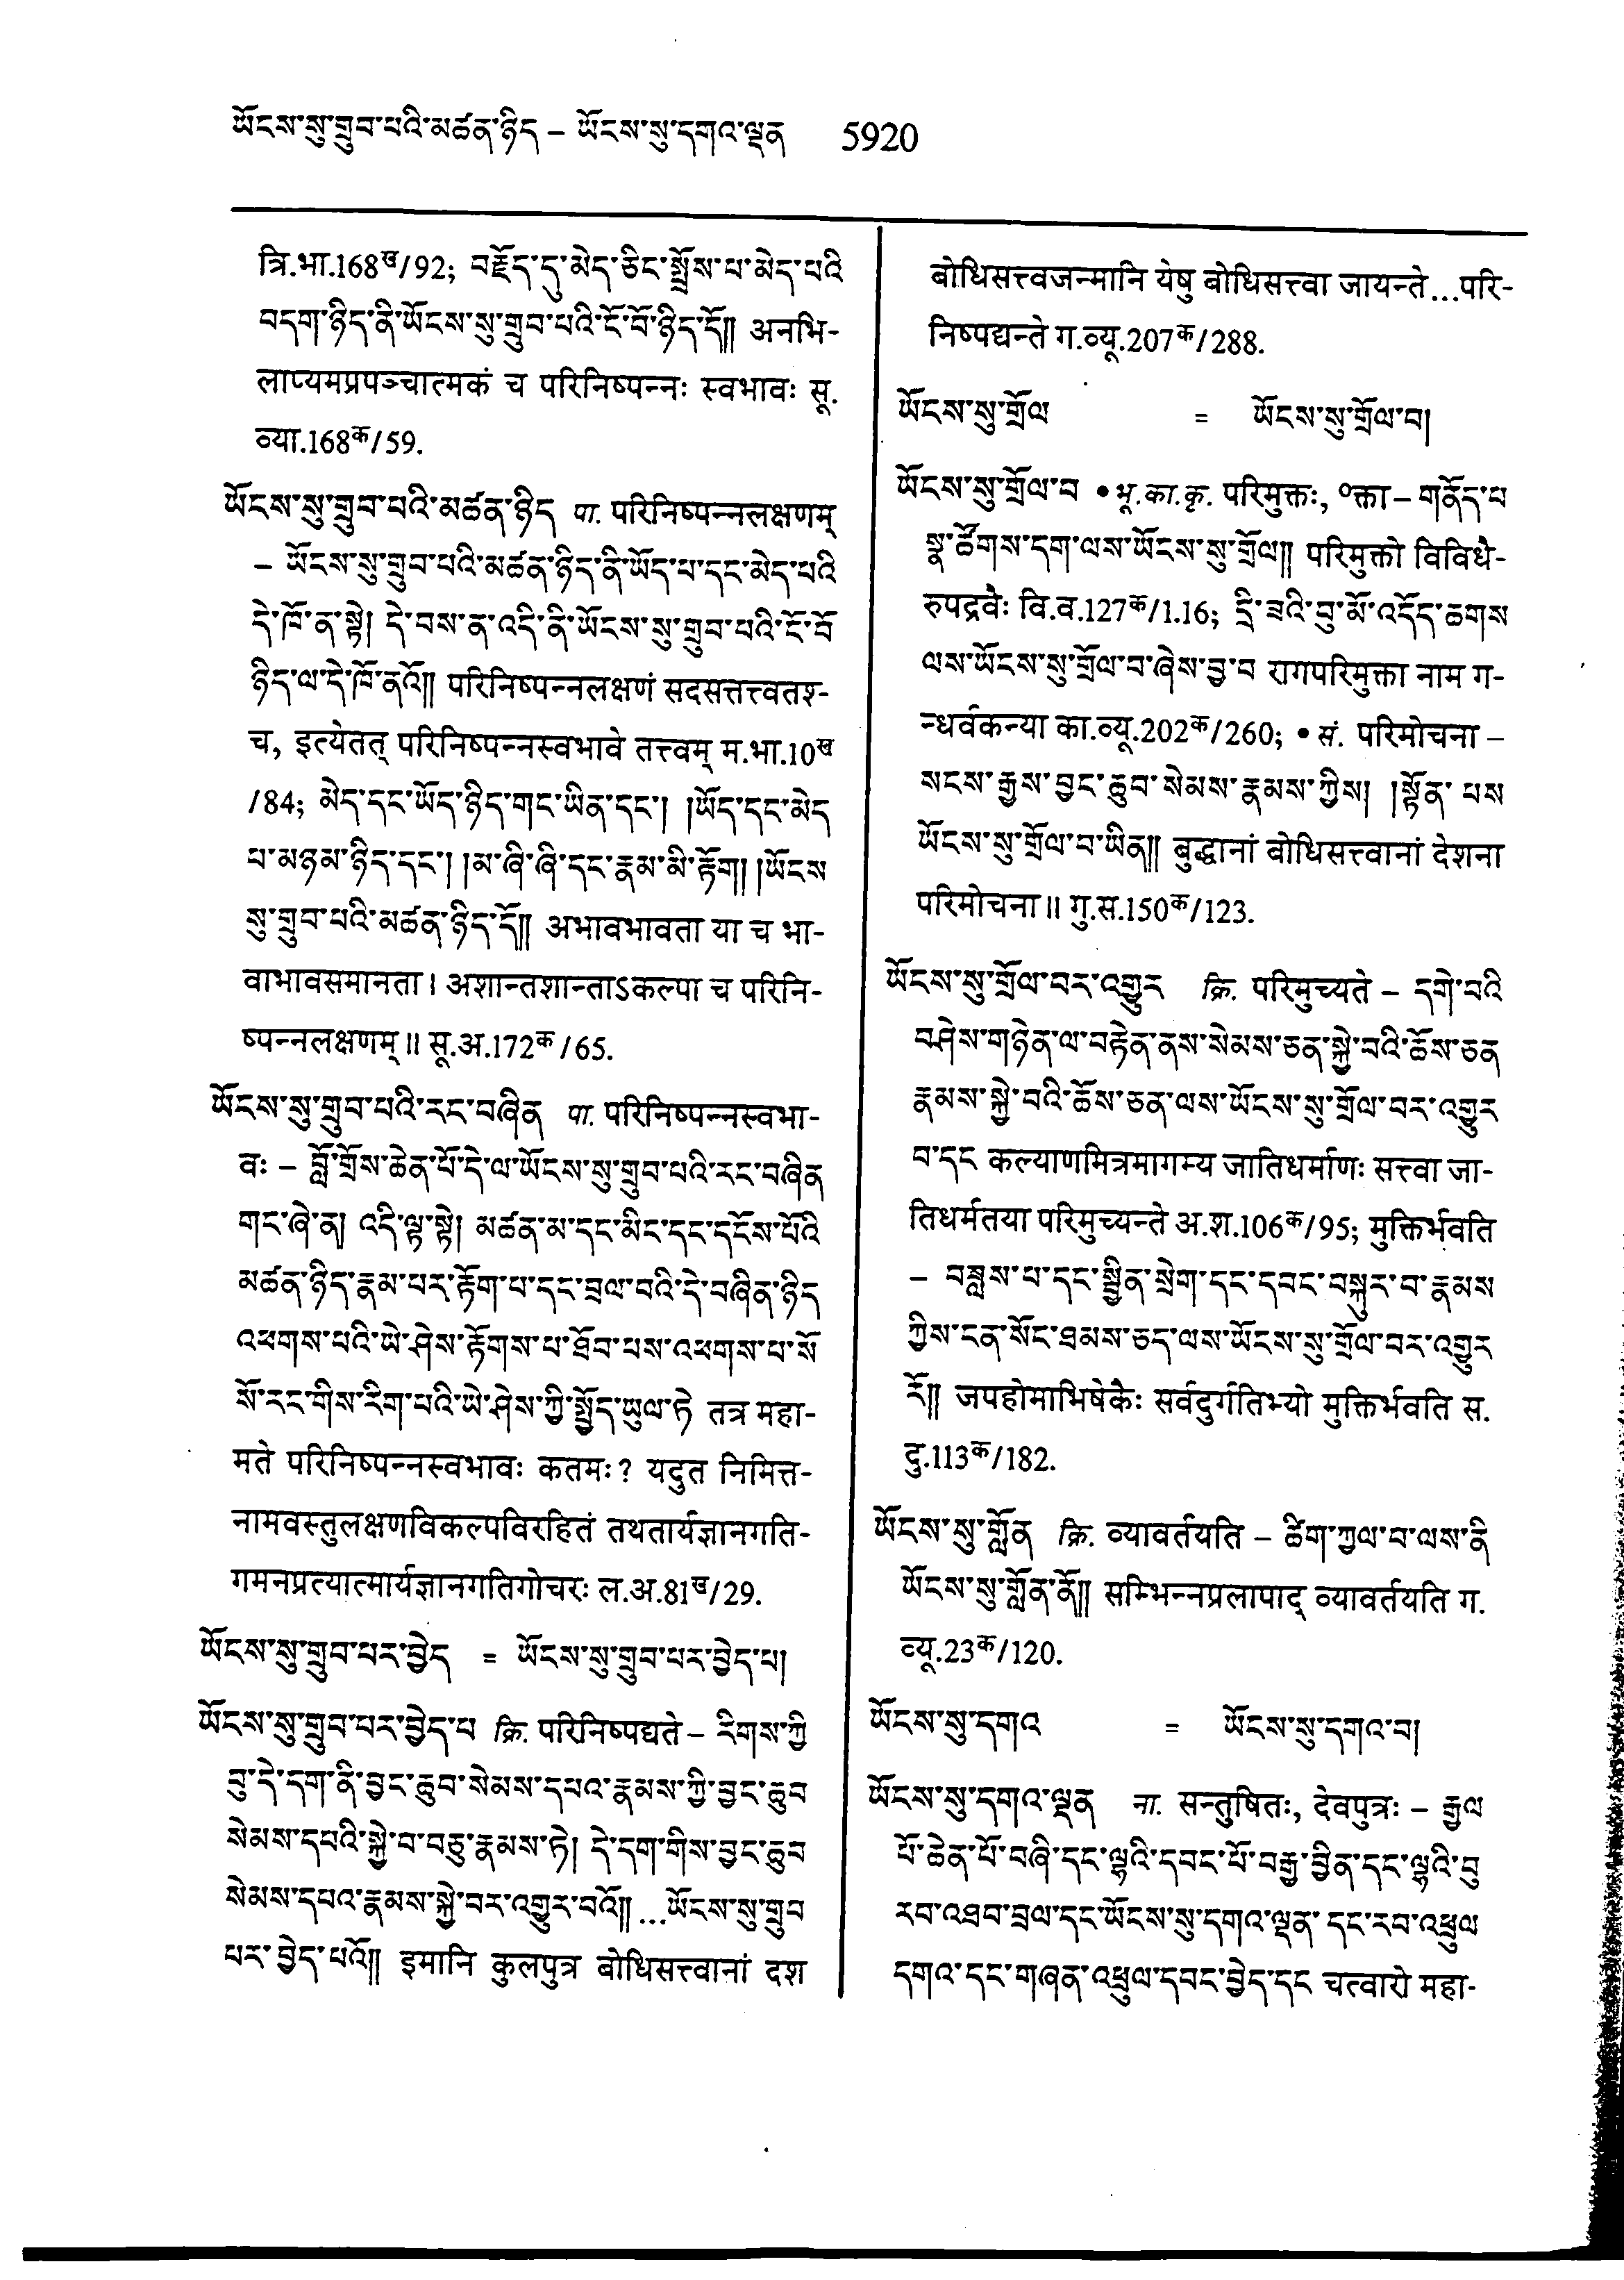 ཡོངས་སུ་གྲུབ་པའི་མཚན་ཉིད – ཡོངས་སུ་དགའ་ལྡན 5920
त्रि.भा.168ख/92; བརྗོད་དུ་མེད་ཅིང་སྤྲོས་པ་མེད་པའི
བདག་ཉིད་ནི་ཡོངས་སུ་གྲུབ་པའི་ངོ་བོ་ཉིད་དོ༎ अनभि-
लाप्यमप्रपञ्चात्मकं च परिनिष्पन्नः स्वभावः सू.
व्या.168क/59.
ཡོངས་སུ་གྲུབ་པའི་མཚན་ཉིད पा. परिनिष्पन्नलक्षणम्
– ཡོངས་སུ་གྲུབ་པའི་མཚན་ཉིད་ནི་ཡོད་པ་དང་མེད་པའི
དེ་ཁོ་ན་སྟེ། དེ་བས་ན་འདི་ནི་ཡོངས་སུ་གྲུབ་པའི་ངོ་བོ
ཉིད་ལ་དེ་ཁོ་ནའོ༎ परिनिष्पन्नलक्षणं सदसत्तत्त्वतश्-
च, इत्येतत् परिनिष्पन्नस्वभावे तत्त्वम् म.भा.10ख
/84; མེད་དང་ཡོད་ཉིད་གང་ཡིན་དང་། །ཡོད་དང་མེད
པ་མཉམ་ཉིད་དང་། །མ་ཞི་ཞི་དང་རྣམ་མི་རྟོག། །ཡོངས
སུ་གྲུབ་པའི་མཚན་ཉིད་དོ༎ अभावभावता या च भा-
वाभावसमानता । अशान्तशान्ताऽकल्पा च परिनि-
ष्पन्नलक्षणम् ॥ सू.अ.172क/65.
ཡོངས་སུ་གྲུབ་པའི་རང་བཞིན पा. परिनिष्पन्नस्वभा-
वः – བློ་གྲོས་ཆེན་པོ་དེ་ལ་ཡོངས་སུ་གྲུབ་པའི་རང་བཞིན
གང་ཞེ་ན། འདི་ལྟ་སྟེ། མཚན་མ་དང་མིང་དང་དངོས་པོའི
མཚན་ཉིད་རྣམ་པར་རྟོག་པ་དང་བྲལ་བའི་དེ་བཞིན་ཉིད
འཕགས་པའི་ཡེ་ཤེས་རྟོགས་པ་ཐོབ་པས་འཕགས་པ་སོ
སོ་རང་གིས་རིག་པའི་ཡེ་ཤེས་ཀྱི་སྤྱོད་ཡུལ་ཏེ तत्र महा-
मते परिनिष्पन्नस्वभावः कतमः? यदुत निमित्त-
नामवस्तुलक्षणविकल्पविरहितं तथतार्यज्ञानगति-
गमनप्रत्यात्मार्यज्ञानगतिगोचरः ल.अ.81ख/29.
ཡོངས་སུ་གྲུབ་པར་བྱེད = ཡོངས་སུ་གྲུབ་པར་བྱེད་པ།
ཡོངས་སུ་གྲུབ་པར་བྱེད་པ क्रि. परिनिष्पद्यते – རིགས་ཀྱི
བུ་དེ་དག་ནི་བྱང་ཆུབ་སེམས་དཔའ་རྣམས་ཀྱི་བྱང་ཆུབ
སེམས་དཔའི་སྐྱེ་བ་བཅུ་རྣམས་ཏེ། དེ་དག་གིས་བྱང་ཆུབ
སེམས་དཔའ་རྣམས་སྐྱེ་བར་འགྱུར་བའོ༎ ...ཡོངས་སུ་གྲུབ
པར་བྱེད་པའོ༎ इमानि कुलपुत्र बोधिसत्त्वानां दश
बोधिसत्त्वजन्मानि येषु बोधिसत्त्वा जायन्ते...परि-
निष्पद्यन्ते ग.व्यू.207क/288.
ཡོངས་སུ་གྲོལ = ཡོངས་སུ་གྲོལ་བ།
ཡོངས་སུ་གྲོལ་བ • भू.का.कृ. परिमुक्तः, ०क्ता – གནོད་པ
སྣ་ཚོགས་དག་ལས་ཡོངས་སུ་གྲོལ༎ परिमुक्तो विविधै-
रुपद्रवैः वि.व.127क/1.16; དྲི་ཟའི་བུ་མོ་འདོད་ཆགས
ལས་ཡོངས་སུ་གྲོལ་བ་ཞེས་བྱ་བ रागपरिमुक्ता नाम ग-
न्धर्वकन्या का.व्यू.202क/260; • सं. परिमोचना –
སངས་རྒྱས་བྱང་ཆུབ་སེམས་རྣམས་ཀྱིས། །སྟོན་པས
ཡོངས་སུ་གྲོལ་བ་ཡིན༎ बुद्धानां बोधिसत्त्वानां देशना
परिमोचना ॥ गु.स.150क/123.
ཡོངས་སུ་གྲོལ་བར་འགྱུར क्रि. परिमुच्यते – དགེ་བའི
བཤེས་གཉེན་ལ་བརྟེན་ནས་སེམས་ཅན་སྐྱེ་བའི་ཆོས་ཅན
རྣམས་སྐྱེ་བའི་ཆོས་ཅན་ལས་ཡོངས་སུ་གྲོལ་བར་འགྱུར
བ་དང कल्याणमित्रमागम्य जातिधर्माणः सत्त्वा जा-
तिधर्मतया परिमुच्यन्ते अ.श.106क/95; मुक्तिर्भवति
– བཟླས་པ་དང་སྦྱིན་སྲེག་དང་དབང་བསྐུར་བ་རྣམས
ཀྱིས་ངན་སོང་ཐམས་ཅད་ལས་ཡོངས་སུ་གྲོལ་བར་འགྱུར
རོ༎ जपहोमाभिषेकैः सर्वदुर्गतिभ्यो मुक्तिर्भवति स.
दु.113क/182.
ཡོངས་སུ་གློན क्रि. व्यावर्तयति – ཚིག་ཀྱལ་བ་ལས་ནི
ཡོངས་སུ་གློན་ནོ༎ सम्भिन्नप्रलापाद् व्यावर्तयति ग.
व्यू.23क/120.
ཡོངས་སུ་དགའ = ཡོངས་སུ་དགའ་བ།
ཡོངས་སུ་དགའ་ལྡན ना. सन्तुषितः, देवपुत्रः – རྒྱལ
པོ་ཆེན་པོ་བཞི་དང་ལྷའི་དབང་པོ་བརྒྱ་བྱིན་དང་ལྷའི་བུ
རབ་འཐབ་བྲལ་དང་ཡོངས་སུ་དགའ་ལྡན་དང་རབ་འཕྲུལ
དགའ་དང་གཞན་འཕྲུལ་དབང་བྱེད་དང चत्वारो महा-